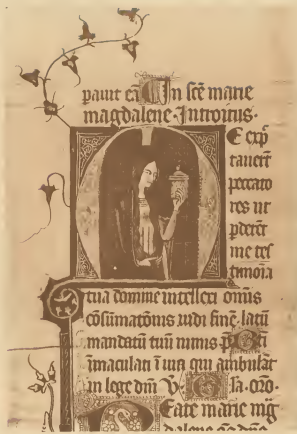 pavit eā In scē marie
magdalene · Introitus ·
Me exp̄
tauerūt
peccato
res ut
p̄derēt
me tes
timoīa
tua domine intellexi omnis
cōsūmatōnis uidi finē · latū
mandatū tuū nimis p̄s Bti
īmaculati ī uia qui ambulāt
in lege dñi V Gla · oro ·
Beate marie mḡ
dalene